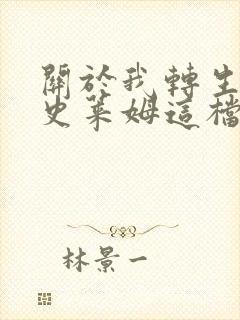 關於我轉生
史萊姆這檔
林景一